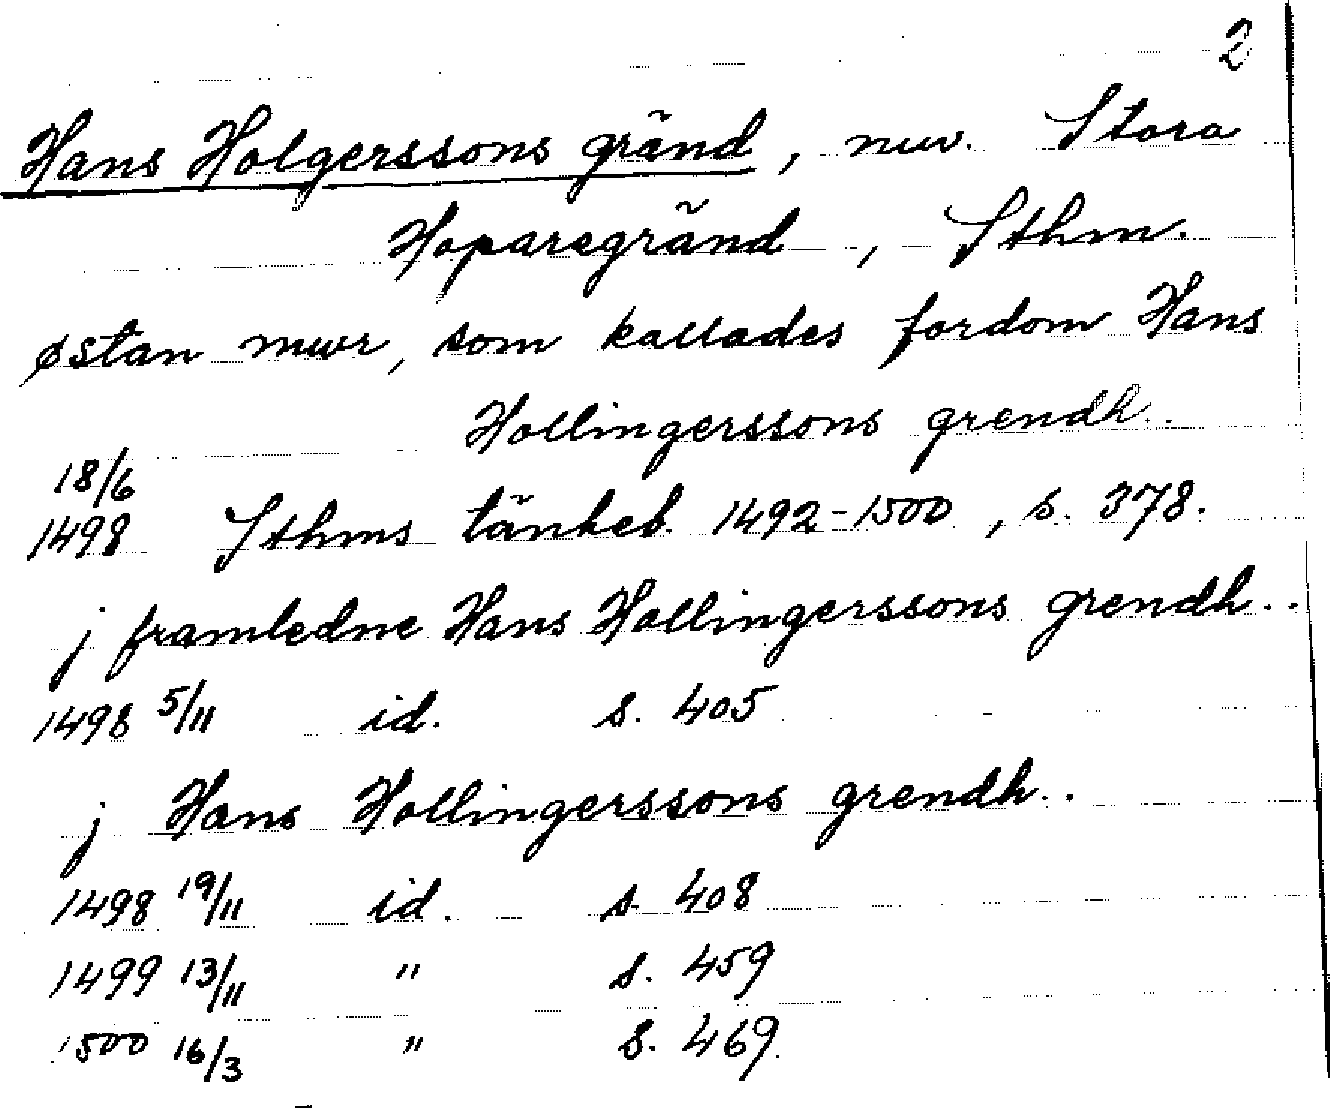 2
Hans Holgerssons gränd, nuv. Stora
Hoparegränd, Sthm.
østan mwr, som kallades fordom Hans
Hollingerssons grendh..
18/6
1498 Sthms tänkeb. 1492-1500, s. 378.
j framledne Hans Hollingerssons grendh..
1498 5/11 id. s. 405
j Hans Hollingerssons grendh..
1498 19/11 id. s. 408
1499 13/11 " s. 459
1500 16/3 " s. 469.